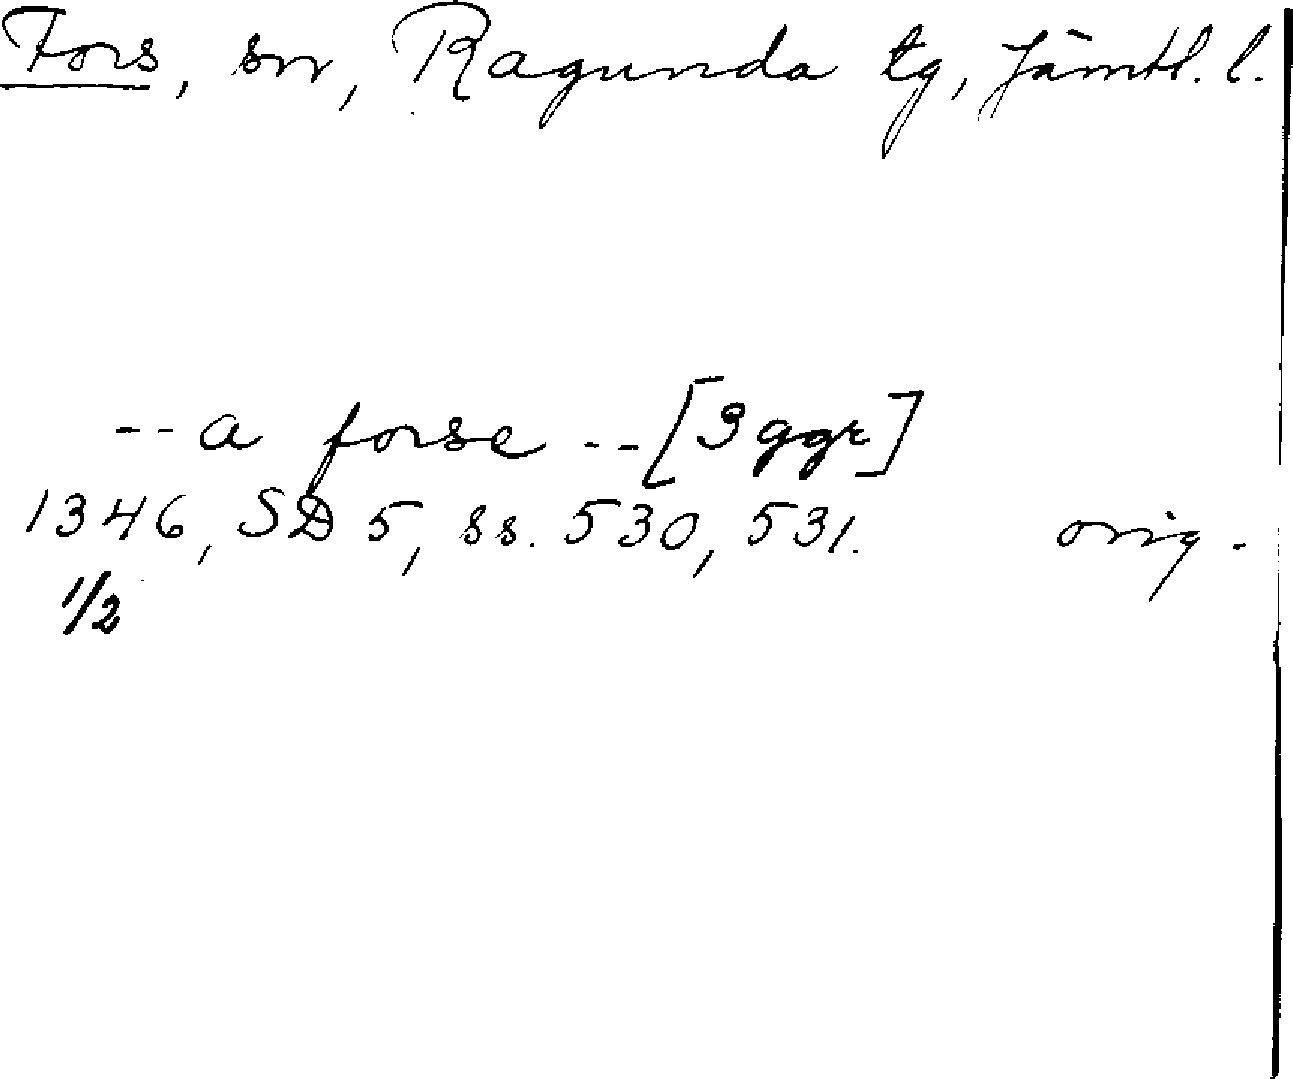 Fors, sn, Ragunda tg, Jämtl. l.
-- a forse -- [3 ggr]
1346, SD 5, ss. 530, 531. orig.
1/2